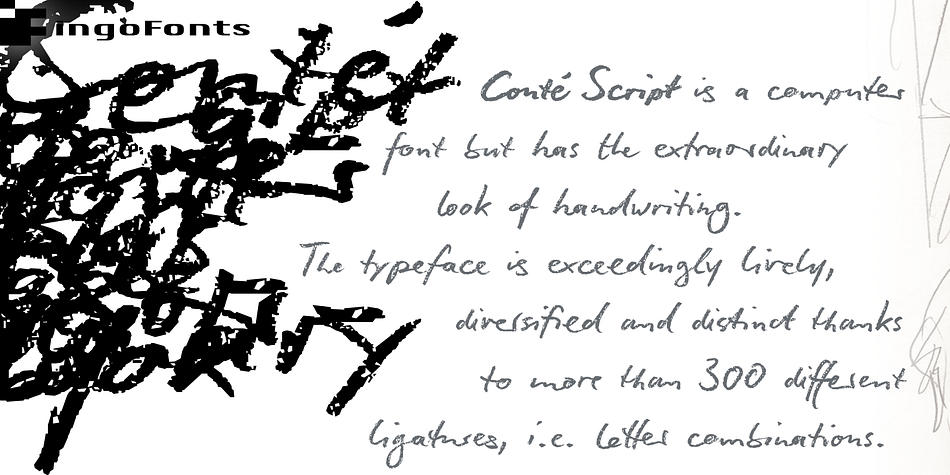 ingoFonts
Conté Script is a computer
font but has the extraordinary
look of handwriting.
The typeface is exceedingly lively,
diversified and distinct thanks
to more than 300 different
ligatures, i.e. letter combinations.